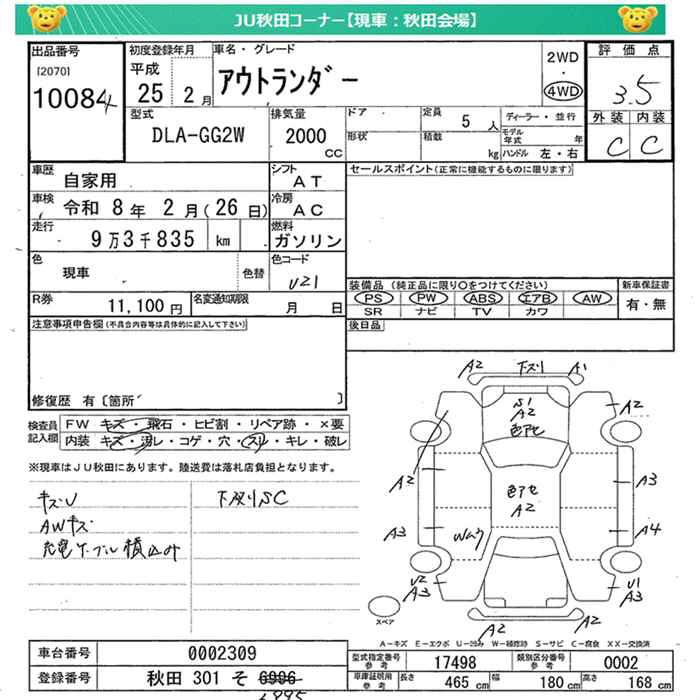 JU秋田コーナー【現車：秋田会場】
出品番号
[2070]
10084
初度登録年月
平成
25 2月
車名・グレード
アウトランダー
2WD
・
4WD
評価点
3.5
外装 内装
C C
型式
DLA-GG2W
排気量
2000
CC
ドア
形状
定員
5 人
積数
kg
ディーラー・並行
モデル年式 年
ハンドル 左・右
車歴
自家用
シフト
AT
セールスポイント(正常に機能するものに限ります)
車検
令和 8年 2月(26日)
冷房
AC
走行
9万3千835 km
燃料
ガソリン
色
現車
色替
色コード
U21
装備品 (純正品に限り○をつけてください)
PS PW ABS エアB AW
SR ナビ TV カワ
新車保証書
有・無
R券
11,100 円
名変通知期限
月 日
後日品
注意事項申告欄(不具合内容等は具体的に記入して下さい)
修復歴 有〔箇所 〕
検査員
記入欄
FW キズ・飛石・ヒビ割・リペア跡・×要
内装 キズ・汚レ・コゲ・穴・スレ・キレ・破レ
※現車はJU秋田にあります。陸送費は落札店負担となります。
キズU
AWキズ
充電ケーブル積込み
下スリSC
A2 下スリ A1
S1
A2
色アセ
A2
A2
A3
色アセ
A2
A3
Wムラ
A4
U2
A3
U1
A3
スペア
A2 A2
A-キズ E-エクボ U-凹み W-補修跡 S-サビ C-腐食 XX-交換済
車台番号
0002309
登録番号
秋田 301 そ 6996
6995
型式指定番号
参考
17498
類別区分番号
参考
0002
車庫証明用
参考
長さ 465 cm
幅 180 cm
高さ 168 cm